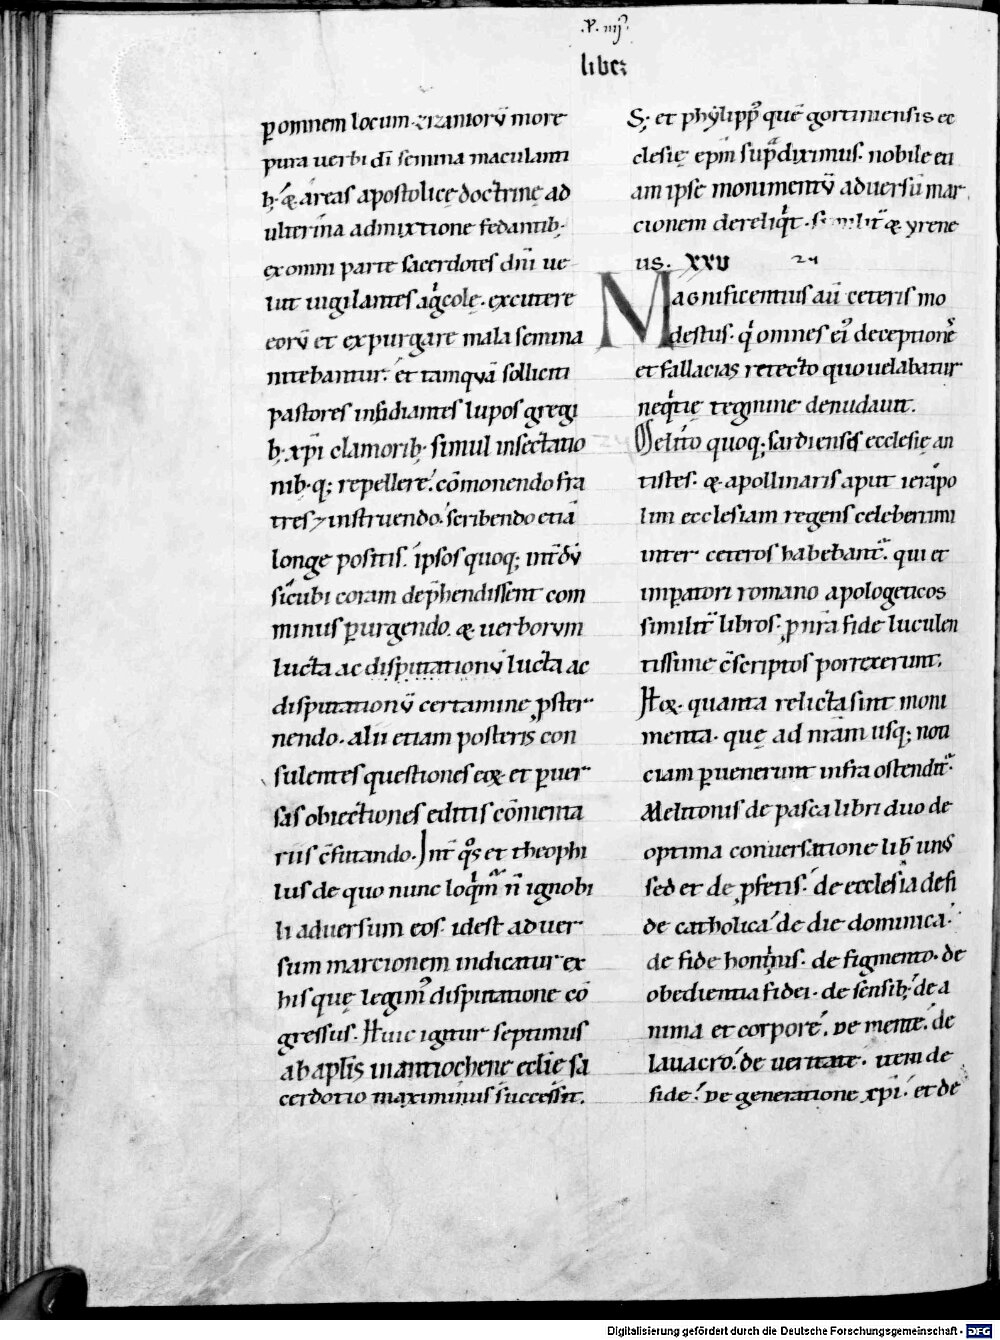 .v. iiij
liber
ꝑ omnem locum zizaniorū more
pura uerbi dī semina maculanti
bꝰ. & áreas apostolicę doctrinę ad
ulterina admixtione fedantib;
ex omni parte sacerdotes dn̄i ue
lut uigilantes ag̍colę. excutere
eorū et expurgare mala semina
nitebantur. et tamquā solliciti
pastores insidiantes lupos gregi
bꝰ xp̄i clamorib; simul insectatio
nib; q; repellere. cōmonendo fra
tres ⁊ instruendo. scribendo etiā
longe positis. ipsos quoq; int̄dū
sicubi coram dep̄hendissent com
minus ꝑurgendo. & uerborum
lucta ac disputationū lucta ac
disputationū certamine ꝓster
nendo. alii etiam posteris con
sulentes questiones eoꝝ et ꝑuer
sas obiectiones editis cōmenta
riis c̄futando. Int̄ q̊s et theophi
lus de quo nunc loq̍m̃ n̄ ignobi
li aduersum eos. idest aduer
sum marcionem indicatur ex
his que legim᷒ disputatione cō
gressus. Huic igitur septimus
ab apl̄is in antiochene ecl̄ie sa
cerdotio maximinus successit.
S; et phylipp᷒ quē gortiniensis ec
clesię ep̄m sup̃diximus. nobile eti
am ipse monimentū aduersū mar
cionem dereliq̍t. similit̃ & yrene
us. XXV 24
Magnificentius aū ceteris mo
destus. q̍ omnes ei᷒ deceptionē
et fallacias retecto quo uelabatur
neq̍tię tegmine denudauit.
Melito quoq; sardiensis ecclesię an
tistes. & apollinaris aput ierapo
lim ecclesiam regens celeberrimi
inter ceteros habebant̃. qui et
imꝑatori romano apologeticos
similit̃ libros. ꝓ nr̄a fide luculen
tissime c̄scriptos porrexerunt.
Hoꝝ. quanta relicta sint moni
menta. quę ad nr̄am usq; noti
ciam ꝑuenerunt infra ostendit̃.
Melitonis de pasca libri duo de
optima conuersatione lib̄ un᷒
sed et de ꝓfetis. de ecclesia de fi
de catholica. de die dominica.
de fide hominis. de figmento. de
obedientia fidei. de sensib; de a
nima et corpore. de mente. de
lauacro. de ueritate. item de
fide. de generatione xp̄i. et de
Digitalisierung gefördert durch die Deutsche Forschungsgemeinschaft - DFG